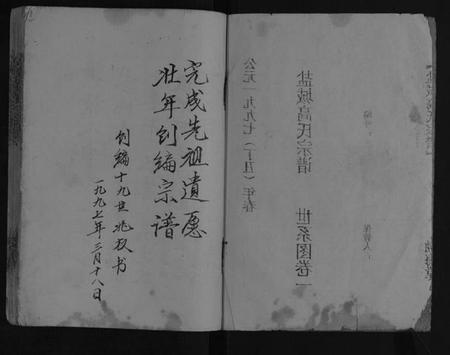 完成先祖遗愿
壮年创编宗谱
创编十九世兆权书
一九九七年三月十八日
公元一九九七(丁丑)年春
盐城高氏宗谱 世系图卷一